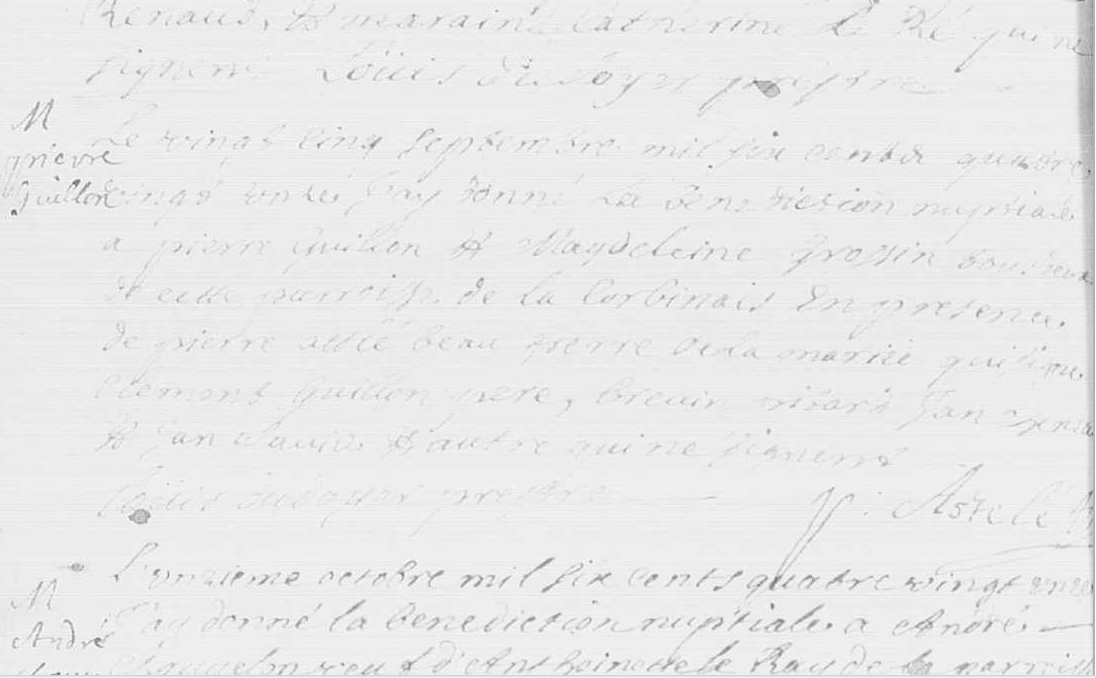 Renaud, & marainé Catherine Le Ré qui ne
signerre Loüis prestre
M
pierre
Guillon
Le vingt cinq septembre mil six cents quatre
vingt onze J'ay donné La benediction nuptiale
a pierre Guillon & Magdeleine Grossin tous deux
de cette parroisse de la Corbinais En presence
de pierre astlé beau frerre de la mariée qui signe
Clement Guillon pere, brevin Jan
& Jan & autre qui ne signerre
Loüis prestre
p. Astelé
M
André
L'onzieme octobre mil six cents quatre vingt onze
J'ay donné la benediction nuptiale a André
veuf d'Anthoinette le Ray de la parroisse